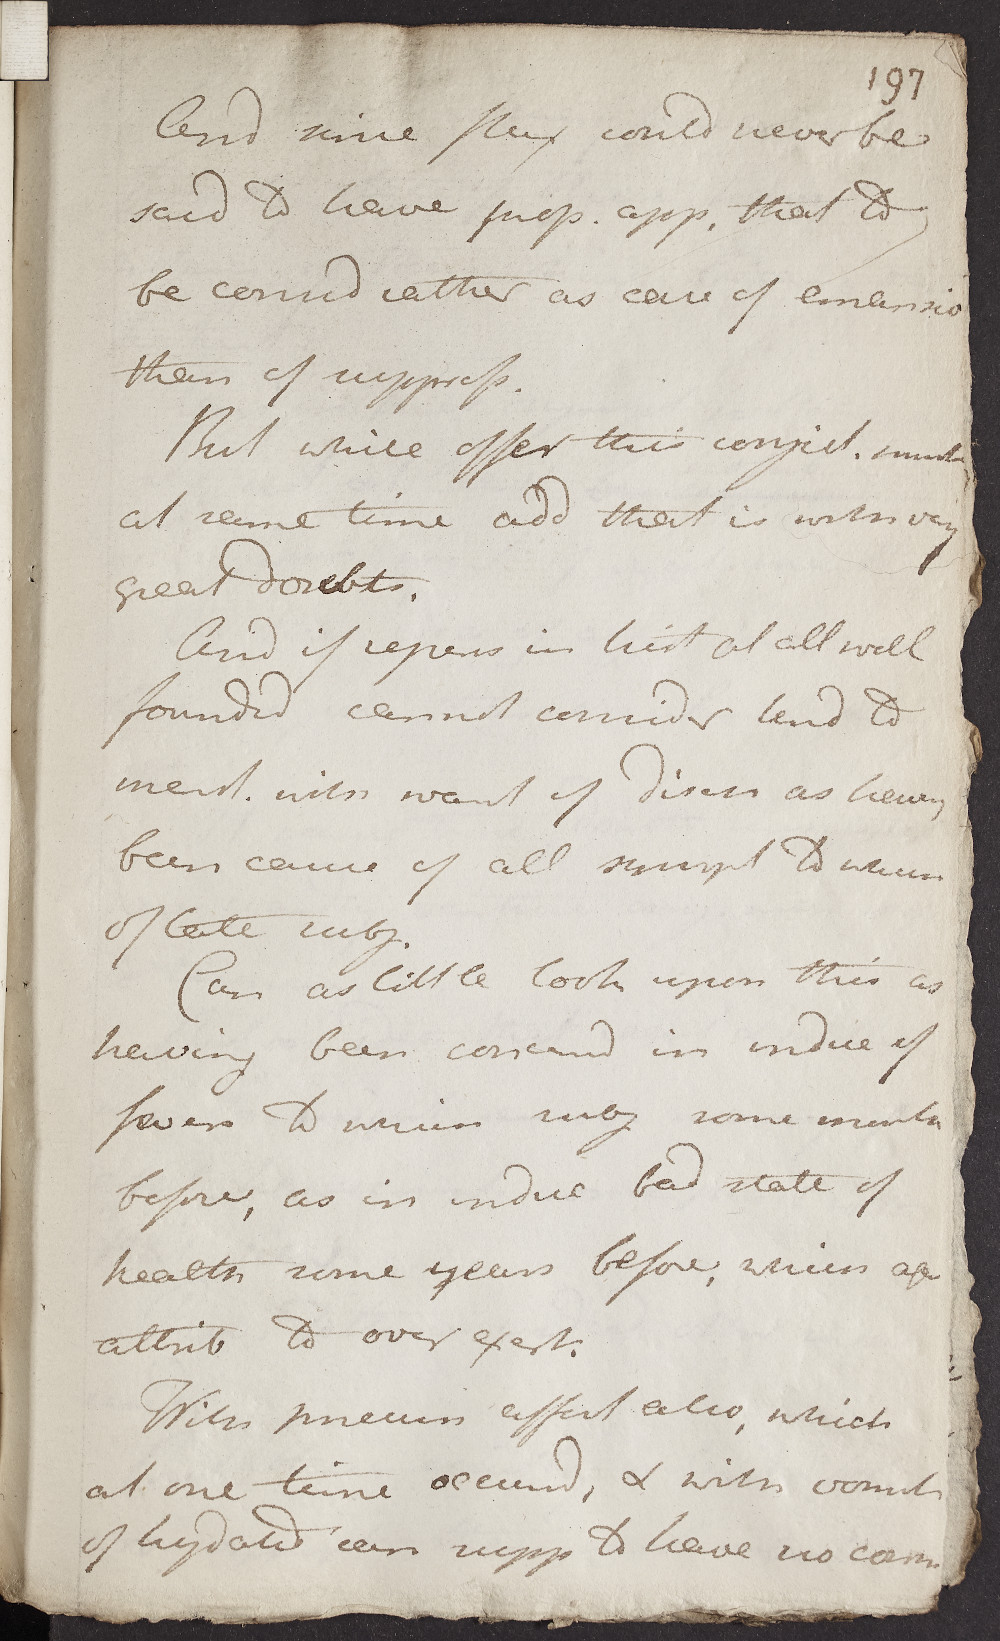 197
And since flux could never be
said to have prop. app. that to
be consid rather as case of emansio
than of suppress.
But while offer this conject. must
at same time add that is with very
great doubts.
And if repens in hist at all well
founded cannot consider tend to
menst. with want of disch as having
been cause of all sympt to which
of late subj.
Can as little look upon this as
having been concernd in induc of
fever to which subj some months
before, as in induc bad state of
health some years before, which
attrib to over exert.
With pneum affect also, which
at one time occurrd, & with vomit
of hydatid can supp to have no conn